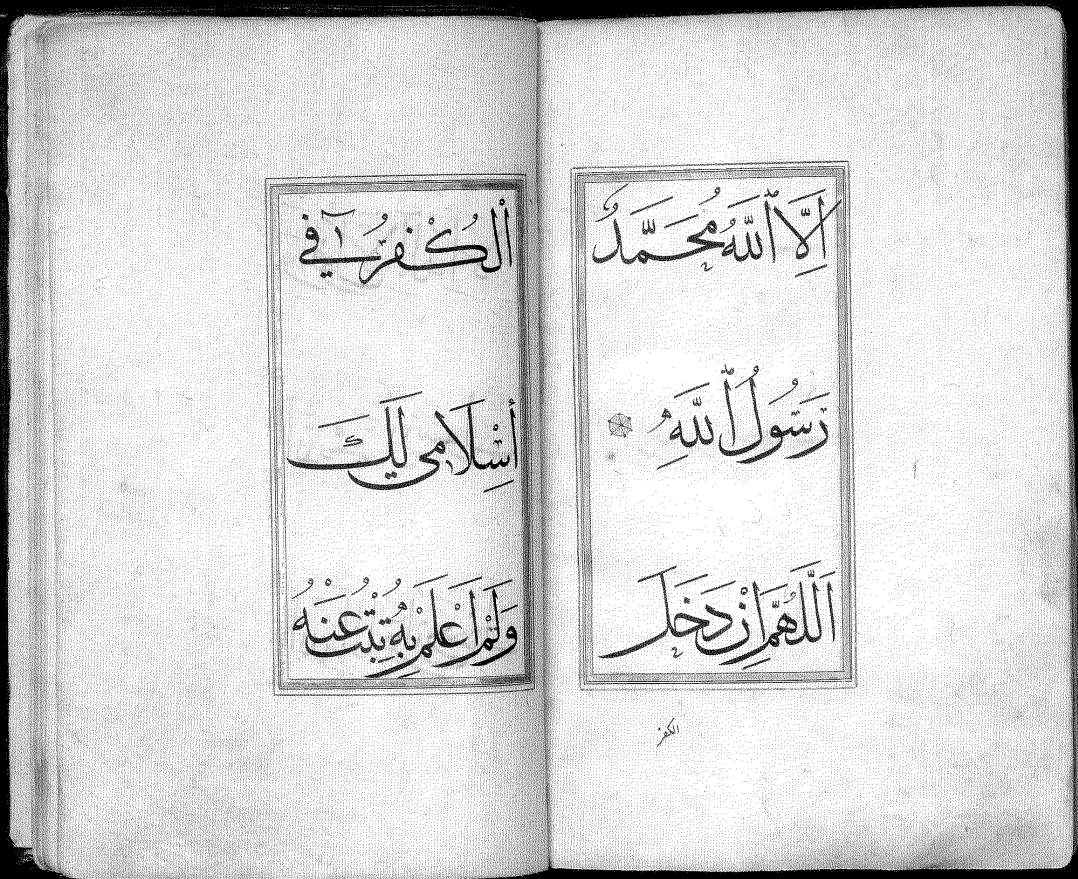 إِلَّا ٱللَّهُ مُحَمَّدٌ
رَسُولُ ٱللَّهِ
اَللَّهُمَّ إِنْ دَخَلَ
الكفر
اَلْكُفْرُ فِي
إِسْلَامِي لَكَ
وَلَمْ اَعْلَمْ بِهِ تُبْتُ عَنْهُ